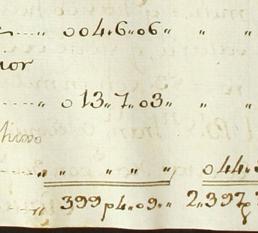 004.6.06 " "
nor
" 013.7.03 " "
" " " " " 044.
399 p 4.09. 2.397